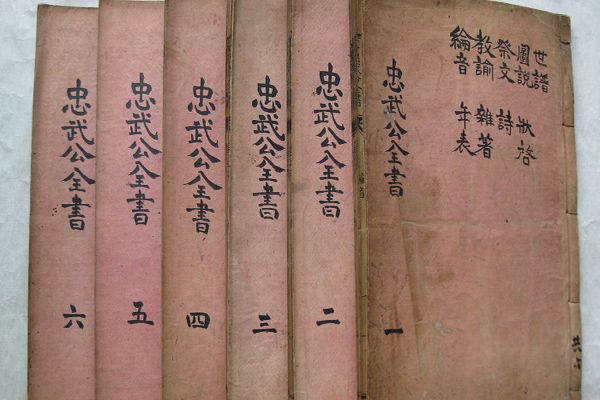 世譜
圖說 狀啓
祭文 詩
教諭 雜著
綸音 年表
忠武公全書 一
共六
忠武公全書 二
忠武公全書 三
忠武公全書 四
忠武公全書 五
忠武公全書 六